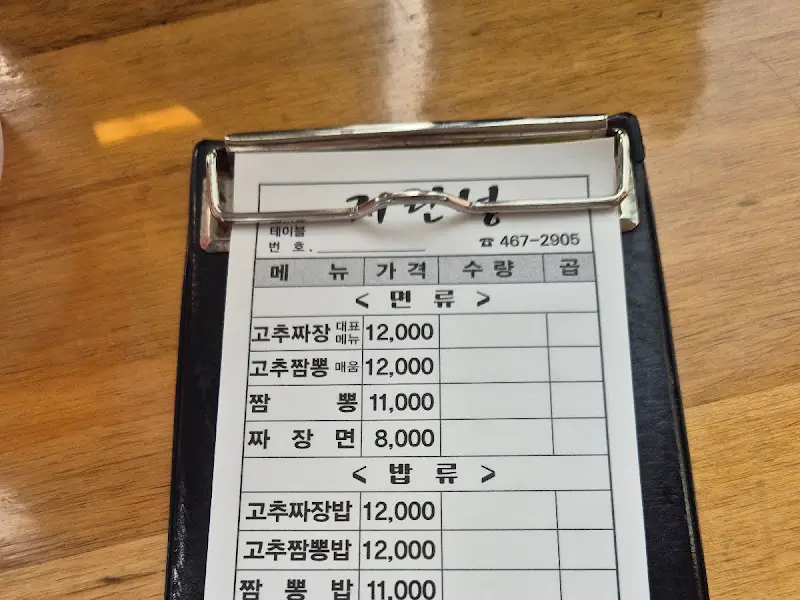 지린성
테이블
번 호. ☎ 467-2905
메 뉴 가 격 수 량 곱
< 면 류 >
고추짜장 대표메뉴 12,000
고추짬뽕 매움 12,000
짬 뽕 11,000
짜 장 면 8,000
< 밥 류 >
고추짜장밥 12,000
고추짬뽕밥 12,000
짬 뽕 밥 11,000